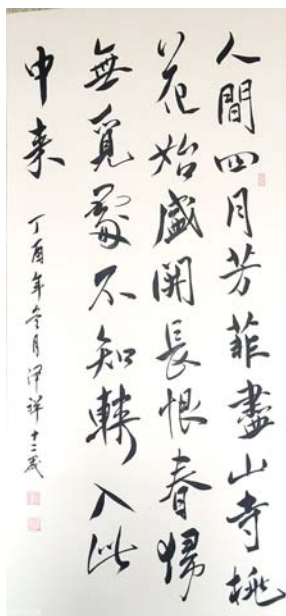 人間四月芳菲盡山寺桃
花始盛開長恨春歸
無覓處不知轉入此
中来
丁酉年冬月祥十二歲